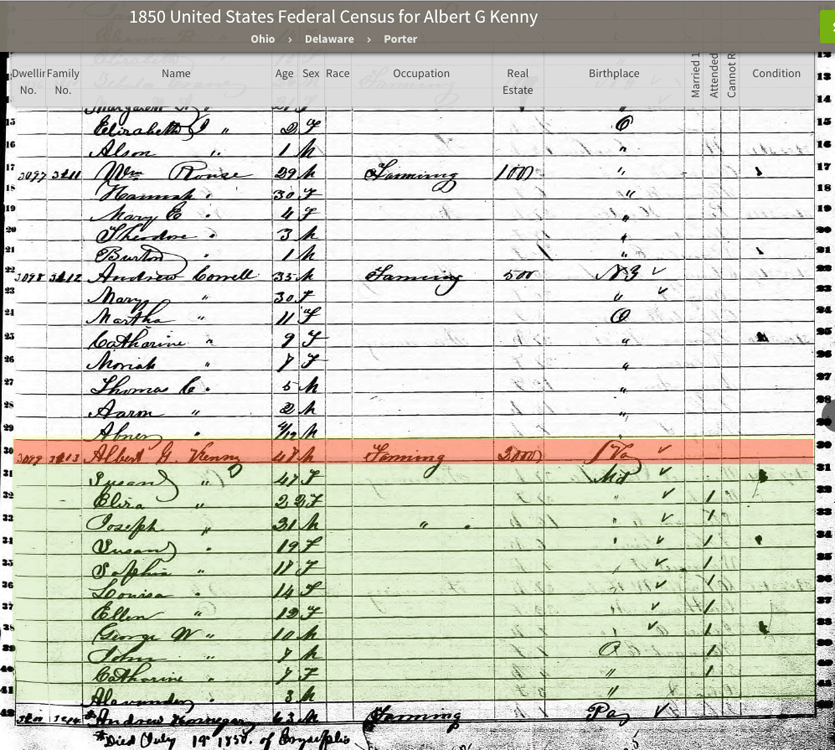 1850 United States Federal Census for Albert G Kenny
Ohio › Delaware › Porter
Dwellin No. Family No. Name Age Sex Race Occupation Real Estate Birthplace Married 1 Attended Cannot R Condition
15 Elizabeth J " 2 F O
16 Alson " 1 M "
17 3097 3211 Wm Rouse 29 M Farming 1000 "
18 Hannah " 30 F "
19 Mary E " 4 F "
20 Theodore " 3 M "
21 Burton " 1 M "
22 3098 3212 Andrew 35 M Farming 500 ✓
23 Mary " 30 F " ✓
24 Martha " 11 F O
25 Catharine " 9 F "
26 Moriah " 7 F "
27 Thomas C " 5 M "
28 Aaron " 2 M "
29 Abner " /12 M "
30 3099 3213 Albert G. Kenny 48 M Farming 2000 Va ✓
31 Susan " 47 F Md ✓
32 Eliza " 22 F " ✓ /
33 Joseph " 21 M " " ✓ /
34 Susan " 19 F " ✓ /
35 Sophia " 17 F " ✓ /
36 Louisa " 14 F " ✓ /
37 Ellen " 12 F " ✓ /
38 George W " 10 M " ✓ /
39 John " 7 M O /
40 Catharine " 7 F " /
41 Alexander " 3 M "
42 Andrew 63 M Farming Pa ✓
*Died July 19 1850. of Erysipelis